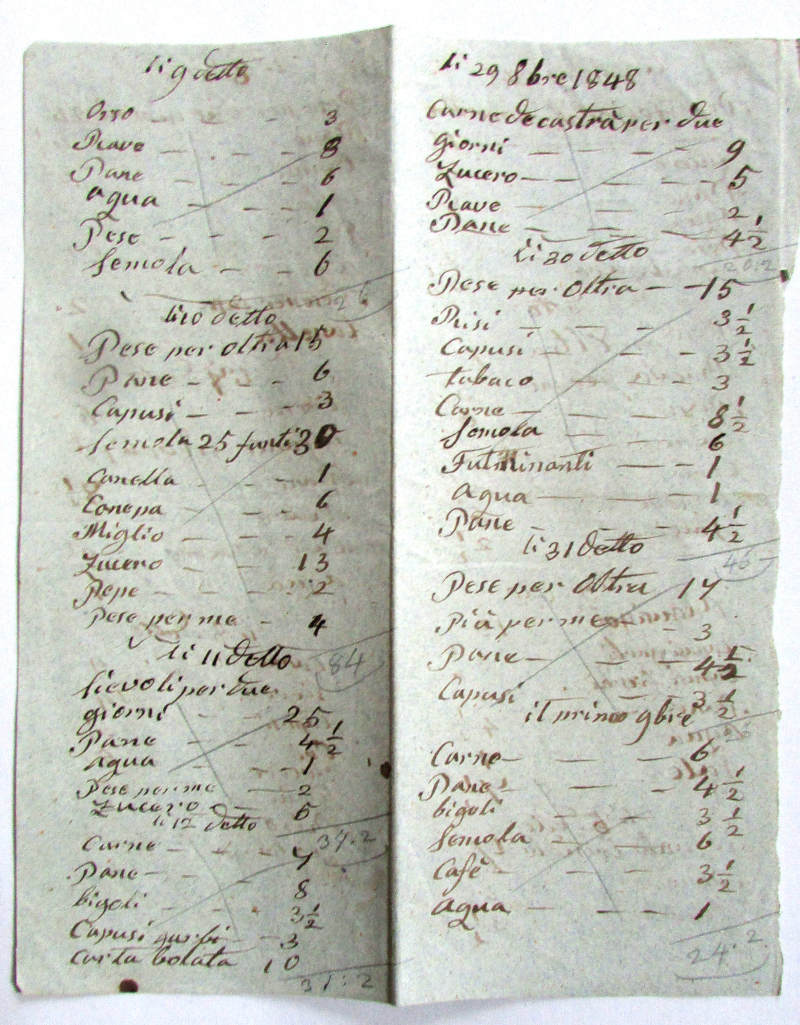 li 9 detto
Orso - - - 3
Piave - - - 8
Pane - - - 6
agua - - - 1
Pese - - - 2
Semola - - 6
26
li 10 detto
Pese per Oltra 15
Pane - - - 6
Capusi - - - 3
Semola 25 funti 30
Canella - - - 1
Conepa - - - 6
Miglio - - - 4
Zucero - - - 13
Pepe - - - 2
Pese per me - 4
84
li 11 detto
Sievoli per due
giorni - - 25
Pane - - - 4 1/2
agua - - - 1
Pese per me - - 2
Zucero - - - 5
37.2
li 12 detto
Carne - - - 7
Pane - - - 8
bigoli - - - 3 1/2
Capusi garbi - - 3
Carta bolata 10
31:2
li 29 8bre 1848
Carne de castrà per due
giorni - - - 9
Zucero - - - 5
Piave - - - 2
Pane - - - 4 1/2
20:2
li 30 detto
Pese per Oltra - - 15
Pisi - - - 3 1/2
Capusi - - - 3 1/2
tabaco - - - 3
Carne - - - 8 1/2
Semola - - - 6
Fulminanti - - 1
agua - - - 1
Pane - - - 4 1/2
46
li 31 detto
Pese per Oltra 17
Più per me - - 3
Pane - - - 4 1/2
Capusi - - - 3 1/2
il primo 9bre
Carne - - - 6
Pane - - - 4 1/2
bigoli - - - 3 1/2
Semola - - - 6
Cafè - - - 3 1/2
agua - - - 1
24.2